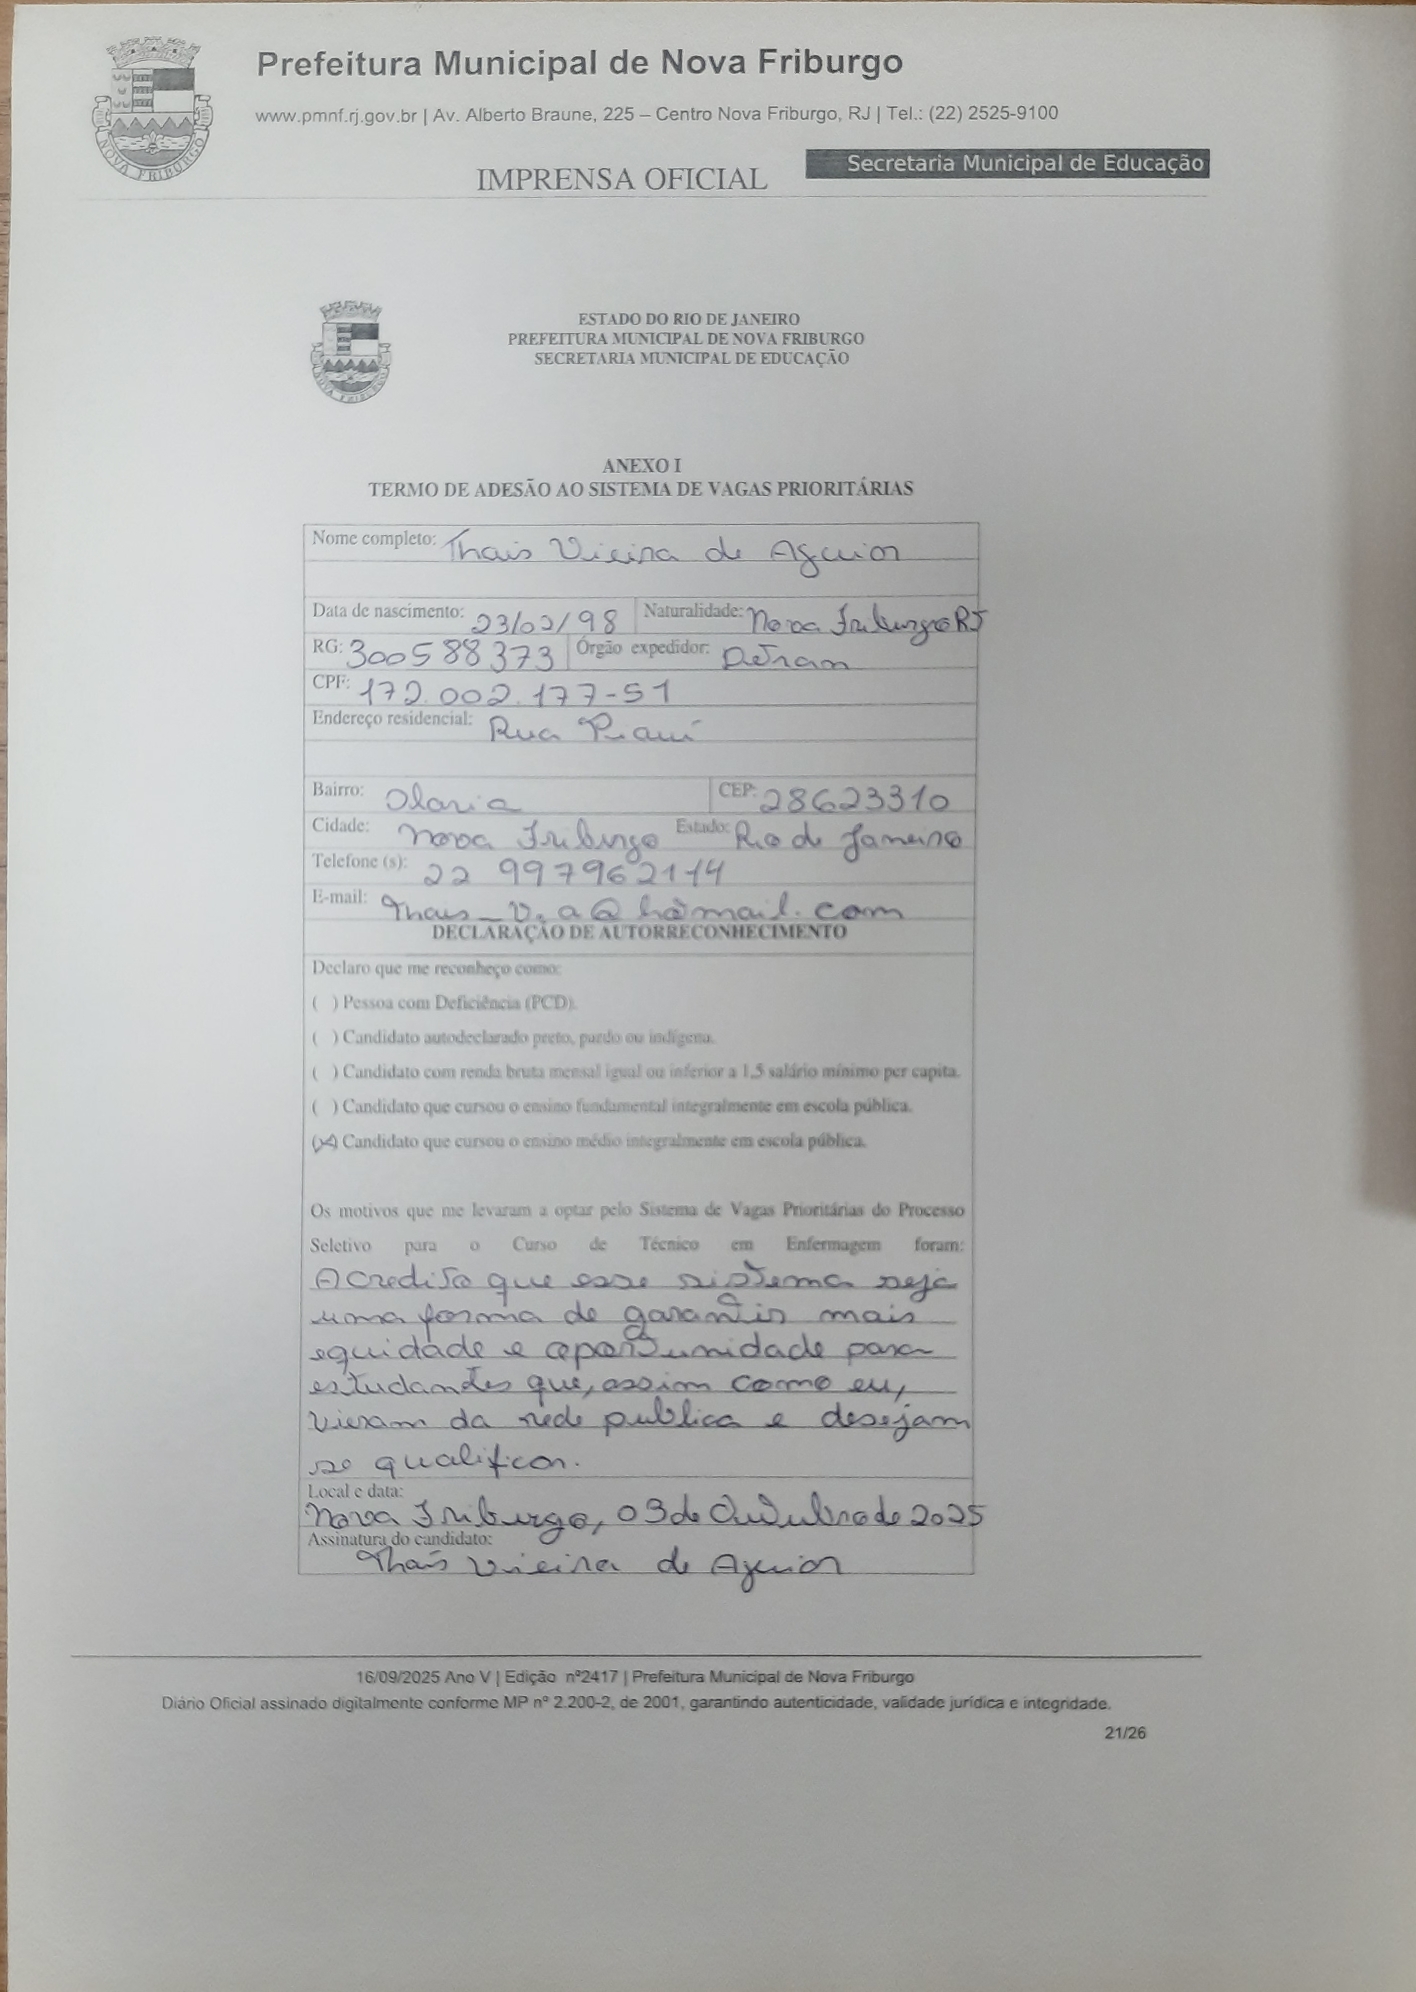 Prefeitura Municipal de Nova Friburgo
www.pmnf.rj.gov.br | Av. Alberto Braune, 225 – Centro Nova Friburgo, RJ | Tel.: (22) 2525-9100
IMPRENSA OFICIAL
Secretaria Municipal de Educação
NOVA FRIBURGO
ESTADO DO RIO DE JANEIRO
PREFEITURA MUNICIPAL DE NOVA FRIBURGO
SECRETARIA MUNICIPAL DE EDUCAÇÃO
NOVA FRIBURGO
ANEXO I
TERMO DE ADESÃO AO SISTEMA DE VAGAS PRIORITÁRIAS
Nome completo: Thais Vieira de Aguiar
Data de nascimento: 23/02/98 Naturalidade: Nova Friburgo RJ
RG: 300588373 Órgão expedidor: Detran
CPF: 172.002.177-51
Endereço residencial: Rua Piauí
Bairro: Olaria CEP: 28623310
Cidade: Nova Friburgo Estado: Rio de Janeiro
Telefone (s): 22 997962114
E-mail: Thais_v.a@hotmail.com
DECLARAÇÃO DE AUTORRECONHECIMENTO
Declaro que me reconheço como:
( ) Pessoa com Deficiência (PCD).
( ) Candidato autodeclarado preto, pardo ou indígena.
( ) Candidato com renda bruta mensal igual ou inferior a 1,5 salário mínimo per capita.
( ) Candidato que cursou o ensino fundamental integralmente em escola pública.
(X) Candidato que cursou o ensino médio integralmente em escola pública.
Os motivos que me levaram a optar pelo Sistema de Vagas Prioritárias do Processo
Seletivo para o Curso de Técnico em Enfermagem foram:
Acredito que esse sistema seja
uma forma de garantir mais
equidade e oportunidade para
estudantes que, assim como eu,
vieram da rede publica e desejam
se qualificar.
Local e data:
Nova Friburgo, 03 de Outubro de 2025
Assinatura do candidato:
Thais Vieira de Aguiar
16/09/2025 Ano V | Edição nº2417 | Prefeitura Municipal de Nova Friburgo
Diário Oficial assinado digitalmente conforme MP nº 2.200-2, de 2001, garantindo autenticidade, validade jurídica e integridade.
21/26